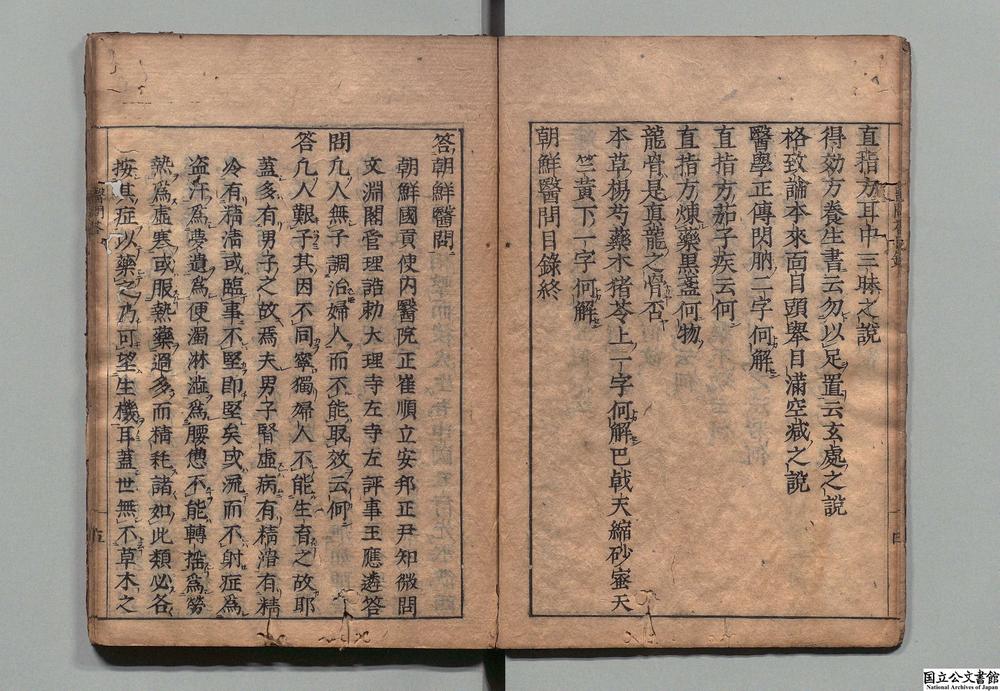 直指方耳中三昧之說
得効方養生書云勿以足置云玄處之說
格致論本來面目頭舉目滿空減之說
醫學正傳閃肭二字何解
直指方茄子疾云何
直指方煉藥黒盞何物
龍骨是眞龍之骨否
本草楊芍藥木猪苓上一字何解巴戟天縮砂蜜天
竺黃下一字何解
朝鮮醫問目錄終
四
答朝鮮醫問
朝鮮國貢使內醫院正崔順立安邦正尹知微問
文淵閣管理誥勅大理寺左寺左評事王應遴答
問凡人無子調治婦人而不能取效云何
答凡人艱子其因不同寧獨婦人不能生育之故耶
蓋多有男子之故焉夫男子腎虛病有精滑有精
冷有精淸或臨事不堅即堅矣或流而不射症爲
盗汗爲夢遺爲便濁淋澁爲腰憊不能轉揺爲勞
熱爲虛寒或服熱藥過多而精耗諸如此類必各
按其症以藥之乃可望生機耳蓋世無不草木之
五
国立公文書館
National Archives of Japan